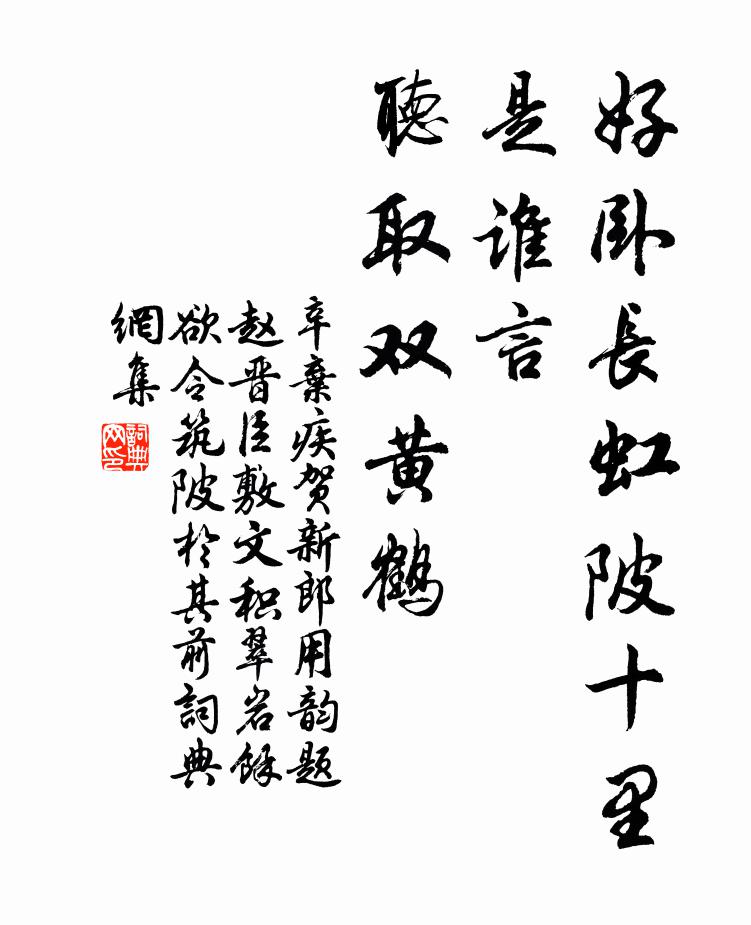 好卧長虹陂十里
是谁言
聽取双黄鶴
辛棄疾贺新郎用韵题
赵晋臣敷文积翠岩餘
欲令筑陂於其前詞典
網集
詞典
网印